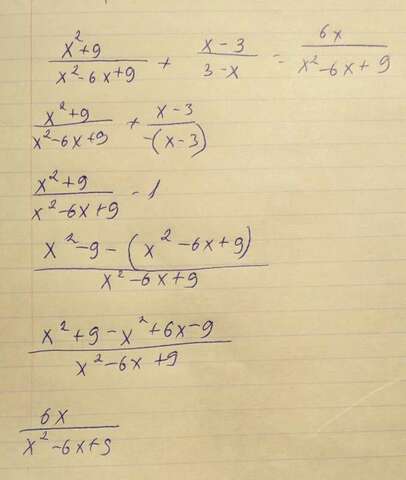 (x²+9)/(x²-6x+9) + (x-3)/(3-x) = 6x/(x²-6x+9)
(x²+9)/(x²-6x+9) + (x-3)/(-(x-3))
(x²+9)/(x²-6x+9) - 1
(x²-9-(x²-6x+9))/(x²-6x+9)
(x²+9-x²+6x-9)/(x²-6x+9)
6x/(x²-6x+9)